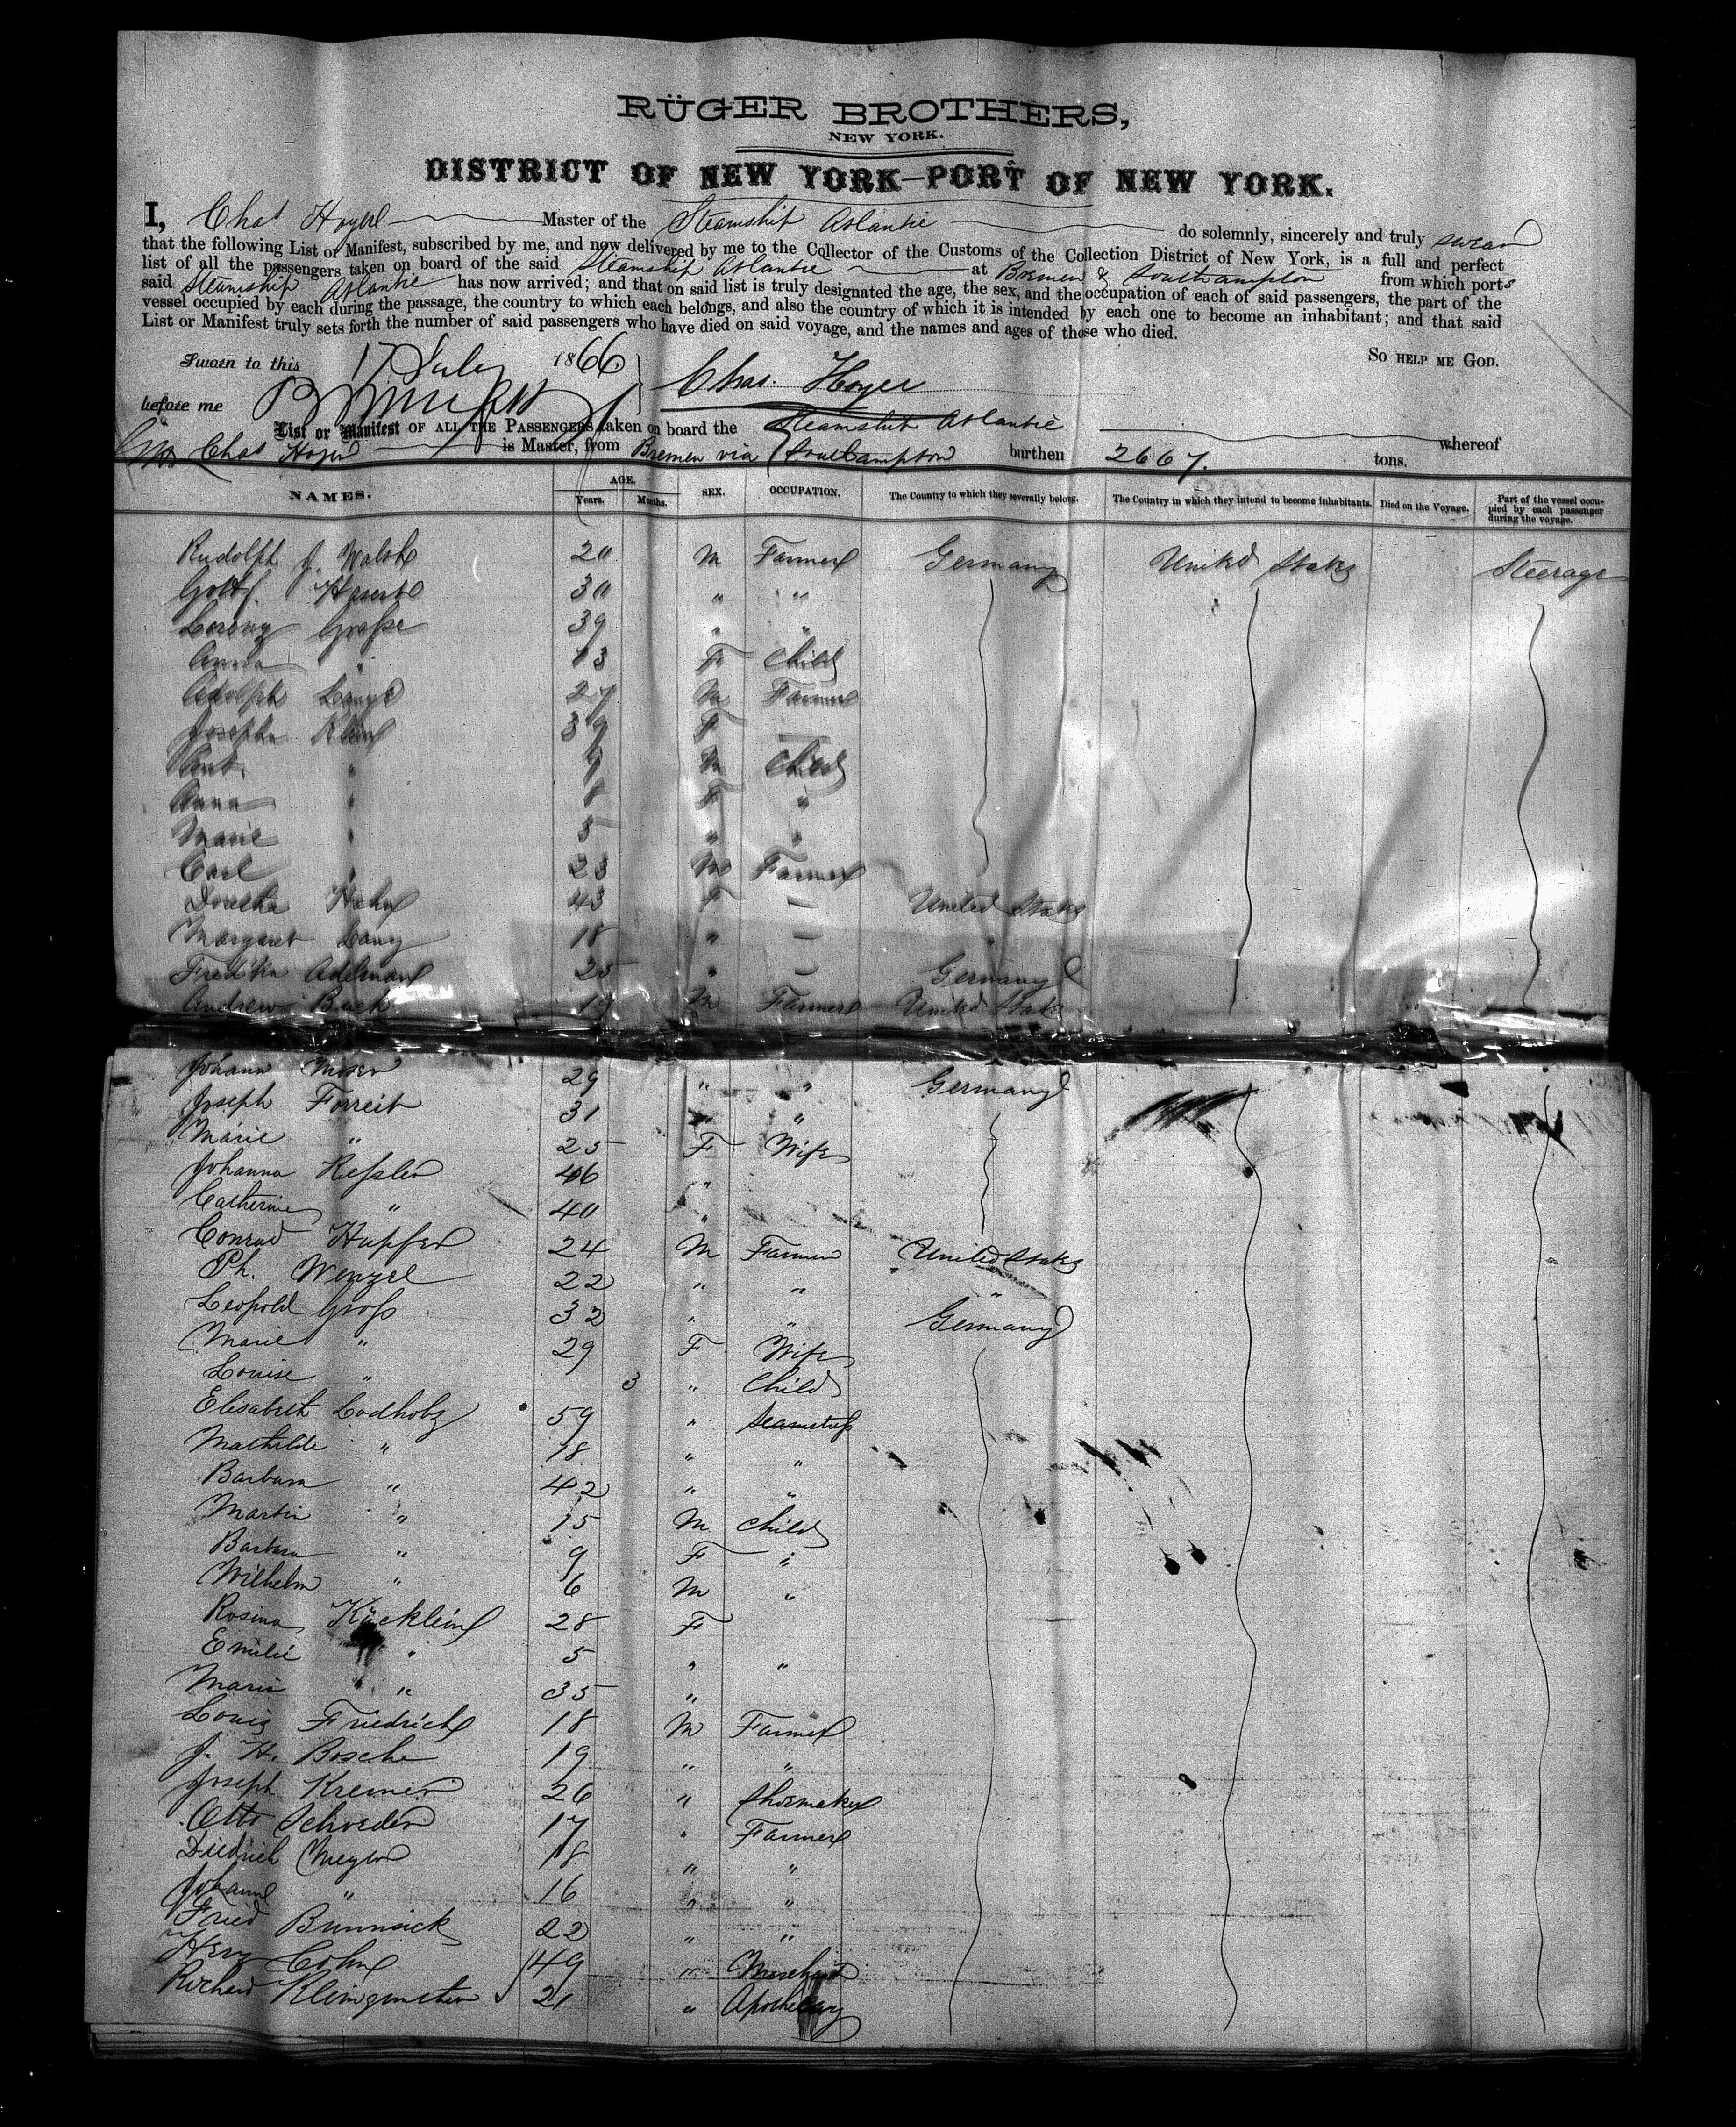 RÜGER BROTHERS,
NEW YORK.
DISTRICT OF NEW YORK—PORT OF NEW YORK.
I, Chas Hoyer Master of the Steamship Atlantic do solemnly, sincerely and truly swear
that the following List or Manifest, subscribed by me, and now delivered by me to the Collector of the Customs of the Collection District of New York, is a full and perfect
list of all the passengers taken on board of the said Steamship Atlantic at Bremen & Southampton from which ports
said Steamship Atlantic has now arrived; and that on said list is truly designated the age, the sex, and the occupation of each of said passengers, the part of the
vessel occupied by each during the passage, the country to which each belongs, and also the country of which it is intended by each one to become an inhabitant; and that said
List or Manifest truly sets forth the number of said passengers who have died on said voyage, and the names and ages of those who died.
SO HELP ME GOD.
Sworn to this 17 July 1866
before me Chas. Hoyer
List or Manifest OF ALL THE PASSENGERS taken on board the Steamship Atlantic whereof
Chas Hoyer is Master, from Bremen via Southampton burthen 2667. tons.
NAMES. AGE. Years. Months. SEX. OCCUPATION. The Country to which they severally belong. The Country in which they intend to become inhabitants. Died on the Voyage. Part of the vessel occupied by each passenger during the voyage.
Rudolph J. 20 M Farmer Germany United States Steerage
Gottf. 30 " "
Lorenz Graſse 39 " "
Anna " 13 F Child
Adolph Lange 27 M Farmer
Josepha Klein 39 F —
Ant. " 9 M Child
Anna " 8 F "
Marie " 5 " "
Carl " 23 M Farmer
Dorethea Hahn 43 F — United States
Margaret Lang 18 " — "
Fred'ka Adelmann 25 " — Germany
Andrew Buck 19 M Farmer United States
Johann Moser 29 " " Germany
Joseph Forreit 31 " "
Marie " 25 F Wife
Johanna Keſsler 46 "
Catherine " 40 "
Conrad Hupfer 24 M Farmer United States
Ph. Wenzel 22 " " "
Leopold Groſs 32 " " Germany
Marie " 29 F Wife
Louise " 3 " Child
Elisabeth Lodholz 59 " Seamstreſs
Mathilde " 18 " "
Barbara " 42 " "
Martin " 15 M Child
Barbara " 9 F "
Wilhelm " 6 M "
Rosina Kücklein 28 F
Emilie " 5 " "
Maria " 35 "
Louis Friedrich 18 M Farmer
J. H. Bosche 19 " "
Joseph Kremer 26 " Shoemaker
Otto Schroeder 17 " Farmer
Diedrich Meyer 18 " "
Johann " 16 " "
Fried Bunnsick 22 " "
Hery Cohn 49 " Merchant
Richard 21 " Apothecary